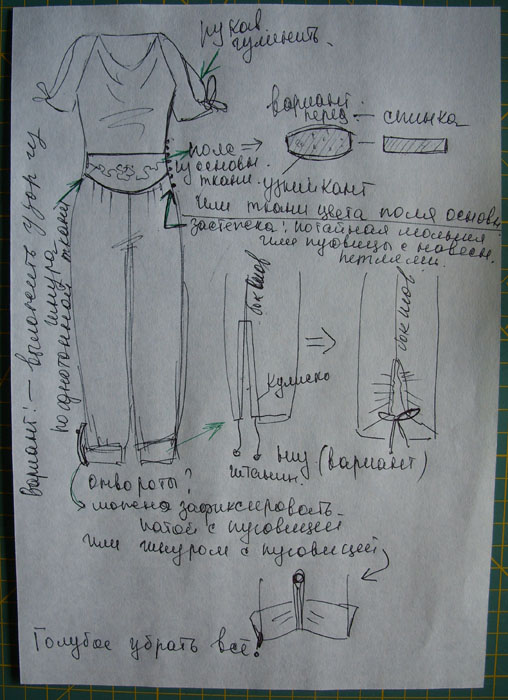 рукав
удлинить.
вариант
перед — спинка
поле
из основн.
ткани.
узкий кант
или ткани цвета поля основы
застежка: потайная молния
или пуговицы с навесн.
петлями.
вариант: — выложить узор из
шнура
по однотонной ткани
бок шов
бок шов
кулиска
низ (вариант)
штанин.
отвороты?
можно зафиксировать
патой с пуговицей
или шнуром с пуговицей
Голубое убрать всё!